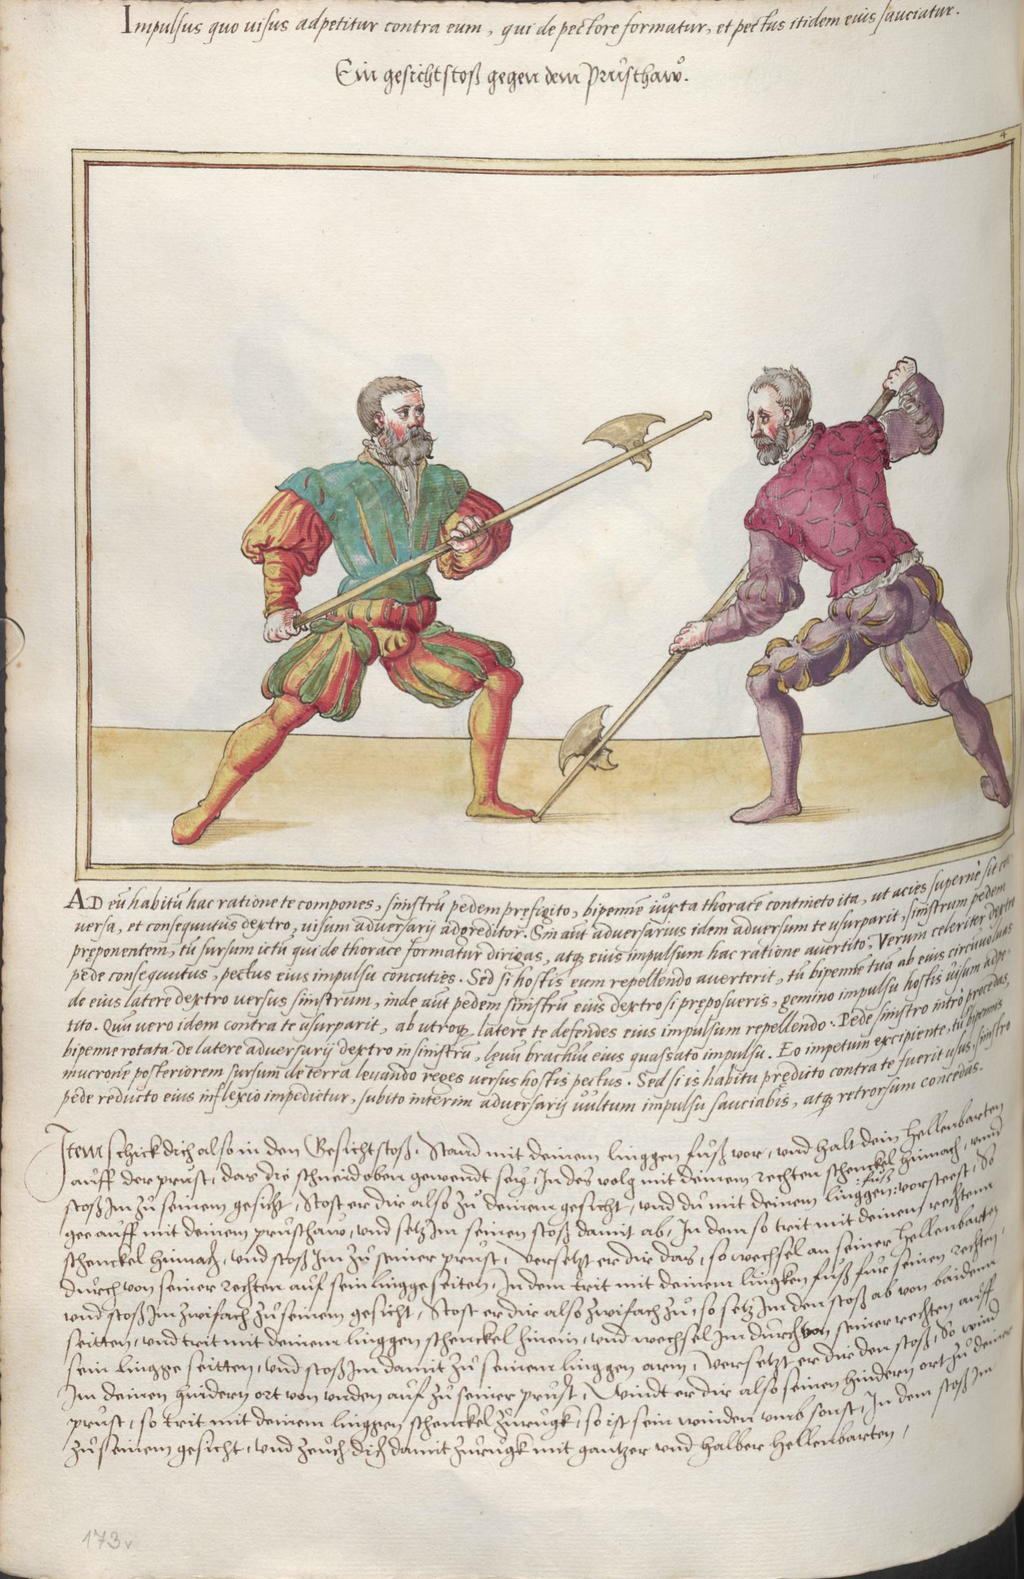 Impulsus quo uisus adpetitur contra eum, qui de pectore formatur, et pectus itidem euis sauciatur.
Ein gesichtstoß gegen dem Prüsthaw.
4
AD eū habitū hac ratione te compones, sinistrū pedem prefigito, bipennē iuxta thoracē contineto ita, ut acies supernè sit
uersa, et consequutus dextro, uisum aduersarÿ adoreditor. Sin aūt aduersarius idem aduersum te usurparit, sinistrum pedem
preponentem, tu sursum ictu qui de thorace formatur dirigas, atq eius impulsum hac ratione auertito. Verum celeriter dextro
pede consequutus, pectus eius impulsu concuties. Sed si hostis eum repellendo auerterit, tu bipennē tua ab eius circumuoluas
de eius latere dextro uersus sinistrum, inde aūt pedem sinistrū eius dextro si preposueris, gemino impulsu hostis uisum adpe-
tito. Quū uero idem contra te usurparit, ab utroq latere te defendes eius impulsum repellendo. Pede sinistro intrò procedas,
bipenne rotata de latere aduersarÿ dextro in sinistrū, leuū brachiū eius quassato impulsu. Eo impetum excipiente, tu bipennis
mucronē posteriorem sursum de terra leuando reges uersus hostis pectus. Sed si is habitu predicto contra te fuerit usus, sinistro
pede reducto eius inflexio impedietur, subito interim aduersarÿ uultum impulsu sauciabis, atq retrorsum concedas.
Item schick dich also in den Gesichtstoß, Stand mit deinem linggen fuß vor, vnd halt dein hellenbarten
auff der prust, das die schneid oben gewendt seÿ, In des volg mit deinem rechten schenckel hinnach, vnd
stoß Im zu seinem gesicht, Stost er dir also zu deinem gesicht, vnd du mit deinem linggen fuß vorsteest, So
gee auff mit deinem prusthaw, vnd setz Im seinen stoß damit ab, In dem so trit mit deinem rechtenn
schenckel hinnach, vnd stoß Im zu seiner prust, Versetzt er dir das, so wechsel an seiner hellenbarten
durch von seiner rechten auf sein lingge seiten, In dem trit mit deinem lingken fuß für seinen rechten,
vnd stoß Im zwifach zu seinem gesicht, Stost er dir also zwifach zu, so setz Im den stoß ab von baidenn
seitten, vnd trit mit deinem linggen schenckel hinein, vnd wechsel Im durch von seiner rechten auff
sein lingge seitten, vnd stoß Im damit zu seinem linggen arm, Versetzt er dir den stoß, So wind
Im deinen hindern ort von vnden auf zu seiner prust, Windt er dir also seinen hindern ort zu deiner
prust, so trit mit deinem linggen schenckel zurugk, so ist sein winden vmb sonst, In dem stoß Im
zu seinem gesicht, vnd zeuch dich damit zurugk mit gantzer vnd halber hellenbarten,
173v